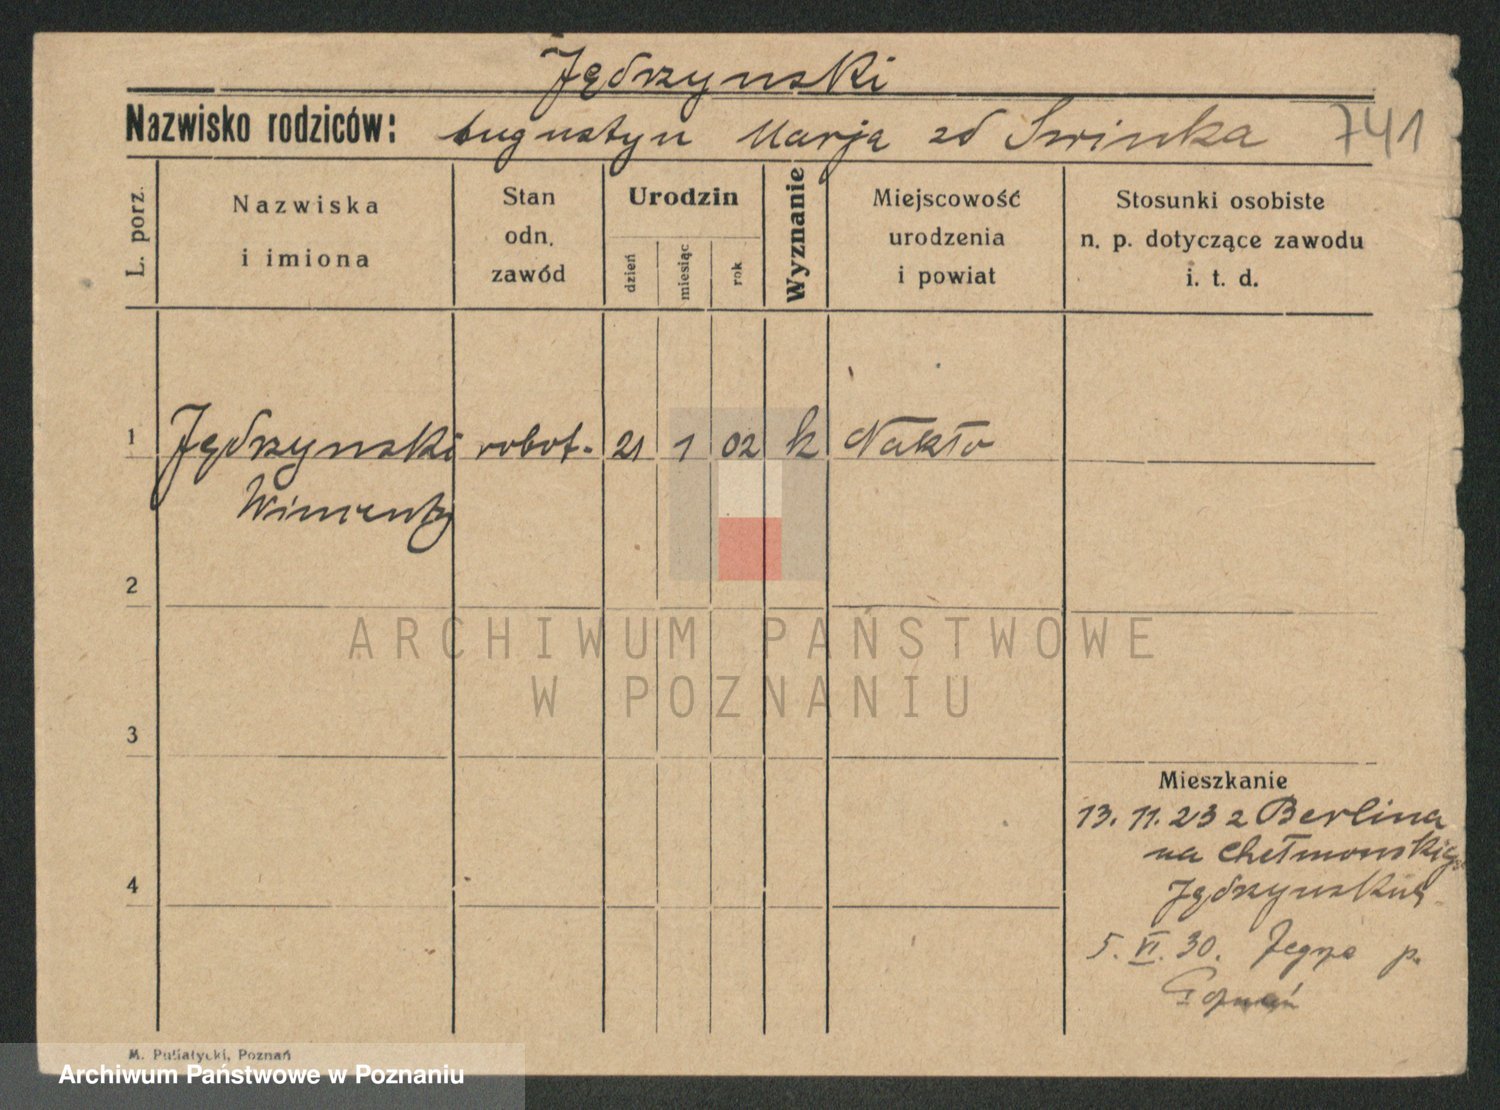 Jędrzynski
Nazwisko rodziców: Augustyn Marja zd Swinka 741
L. porz.
Nazwiska
i imiona
Stan
odn.
zawód
Urodzin
dzień
miesiąc
rok
Wyznanie
Miejscowość
urodzenia
i powiat
Stosunki osobiste
n. p. dotyczące zawodu
i. t. d.
1 Jędrzynski robot. 21 1 02 k Nakło
Wincenty
2
3
4
Mieszkanie
13. 11. 23 z Berlina
na Chełmonskiego
5. VI. 30. p.
ARCHIWUM PAŃSTWOWE
W POZNANIU
M. Putiatycki, Poznań
Archiwum Państwowe w Poznaniu